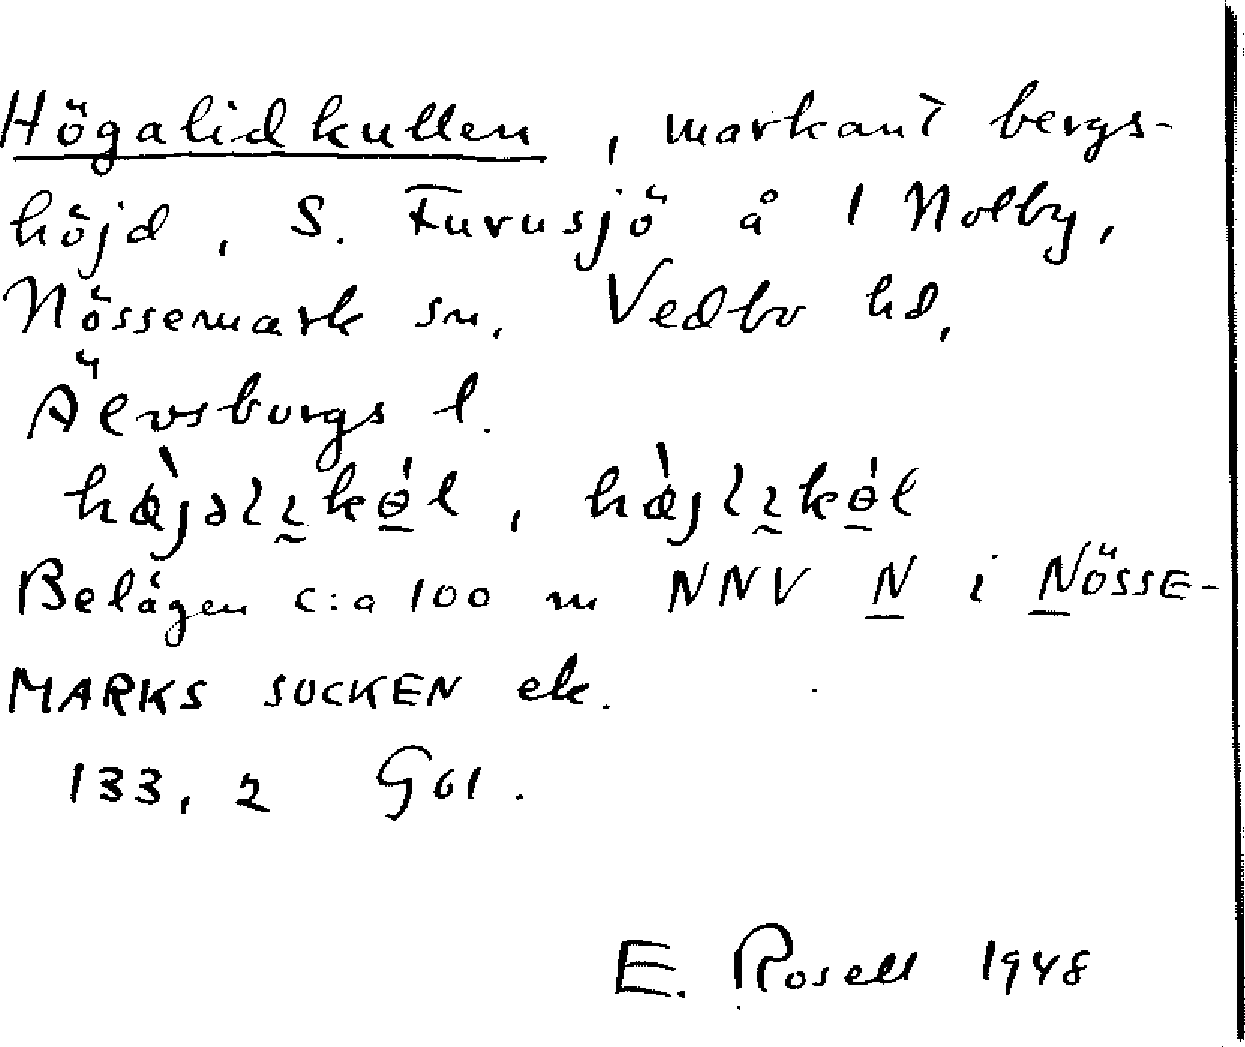 Högalidkullen, markant bergs-
höjd, S. Furusjö å 1 Nolby,
Nössemark sn, Vedbo hd,
Älvsburgs l.
Belägen c:a 100 m NNV N i NÖSSE-
MARKS SOCKEN ek.
133, 2 G61.
E. Rosell 1948